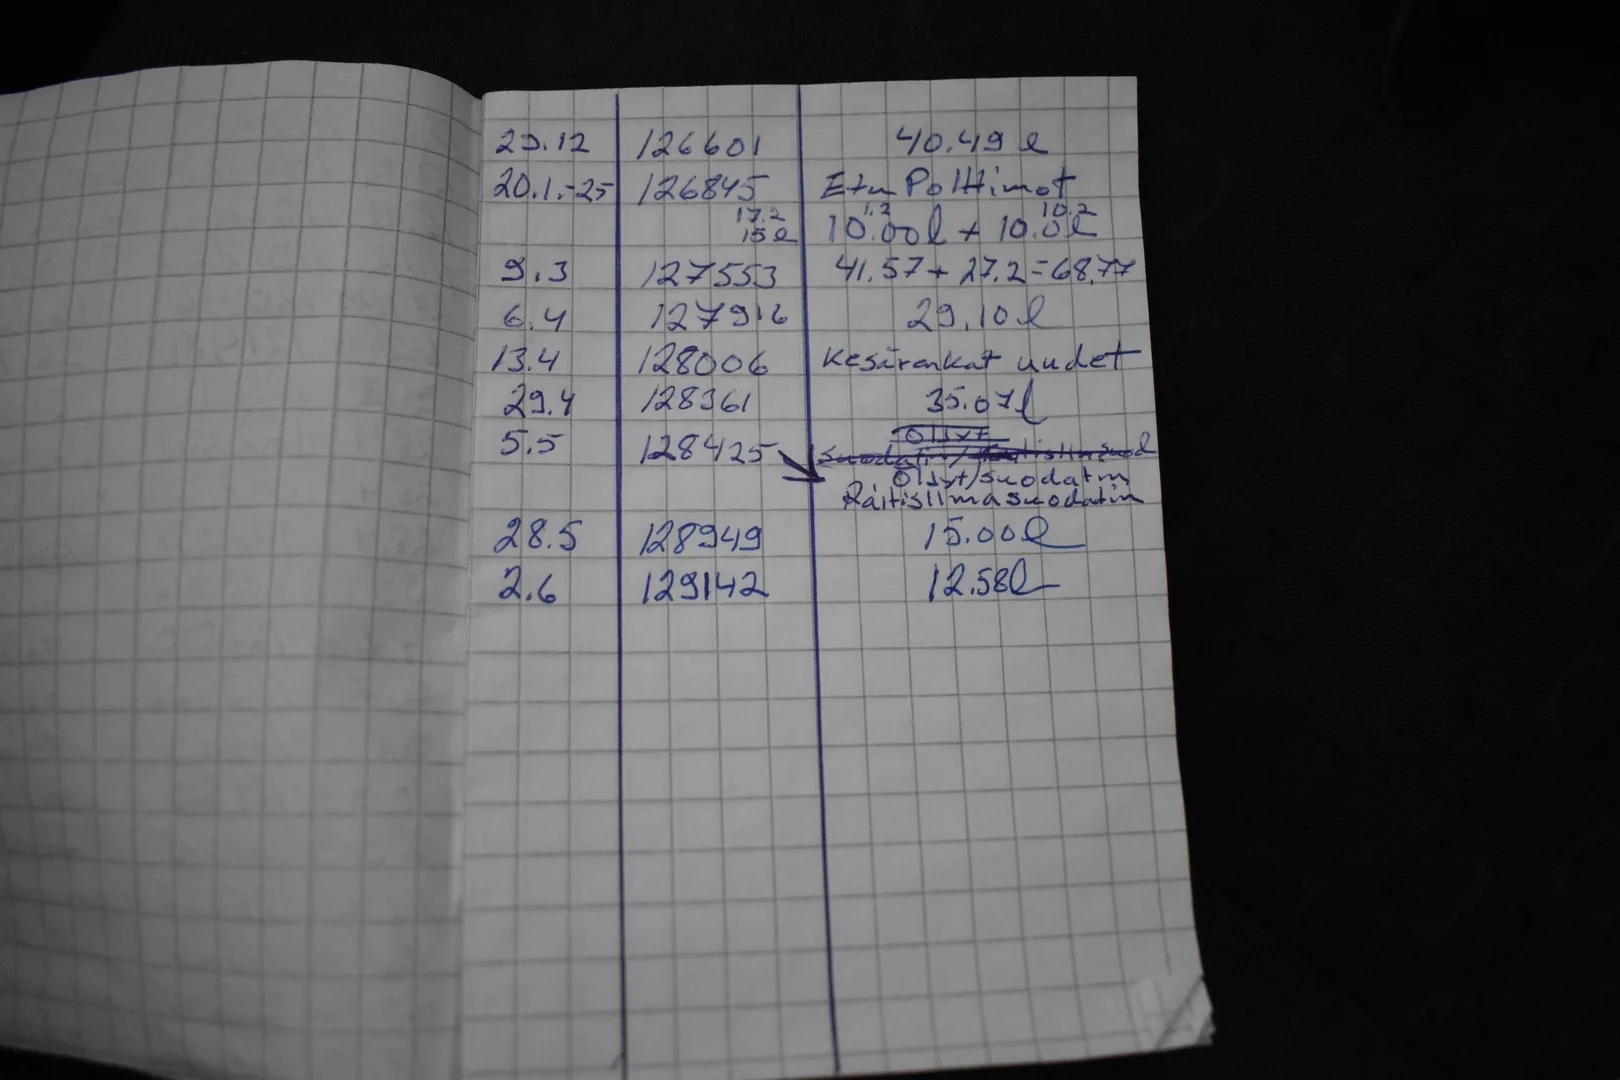 29.12 126601 40.49 l
20.1.-25 126845 Etu Polttimot
17.2 1.2 10.2
15 l 10.00l + 10.0l
9.3 127553 41.57 + 27.2 = 68.77
6.4 127916 29.10 l
13.4 128006 Kesärenkat uudet
29.4 128361 35.07l
5.5 128425 Öljyt
Öljyt/suodatin
Raitisilmasuodatin
28.5 128949 15.00l
2.6 129142 12.58l